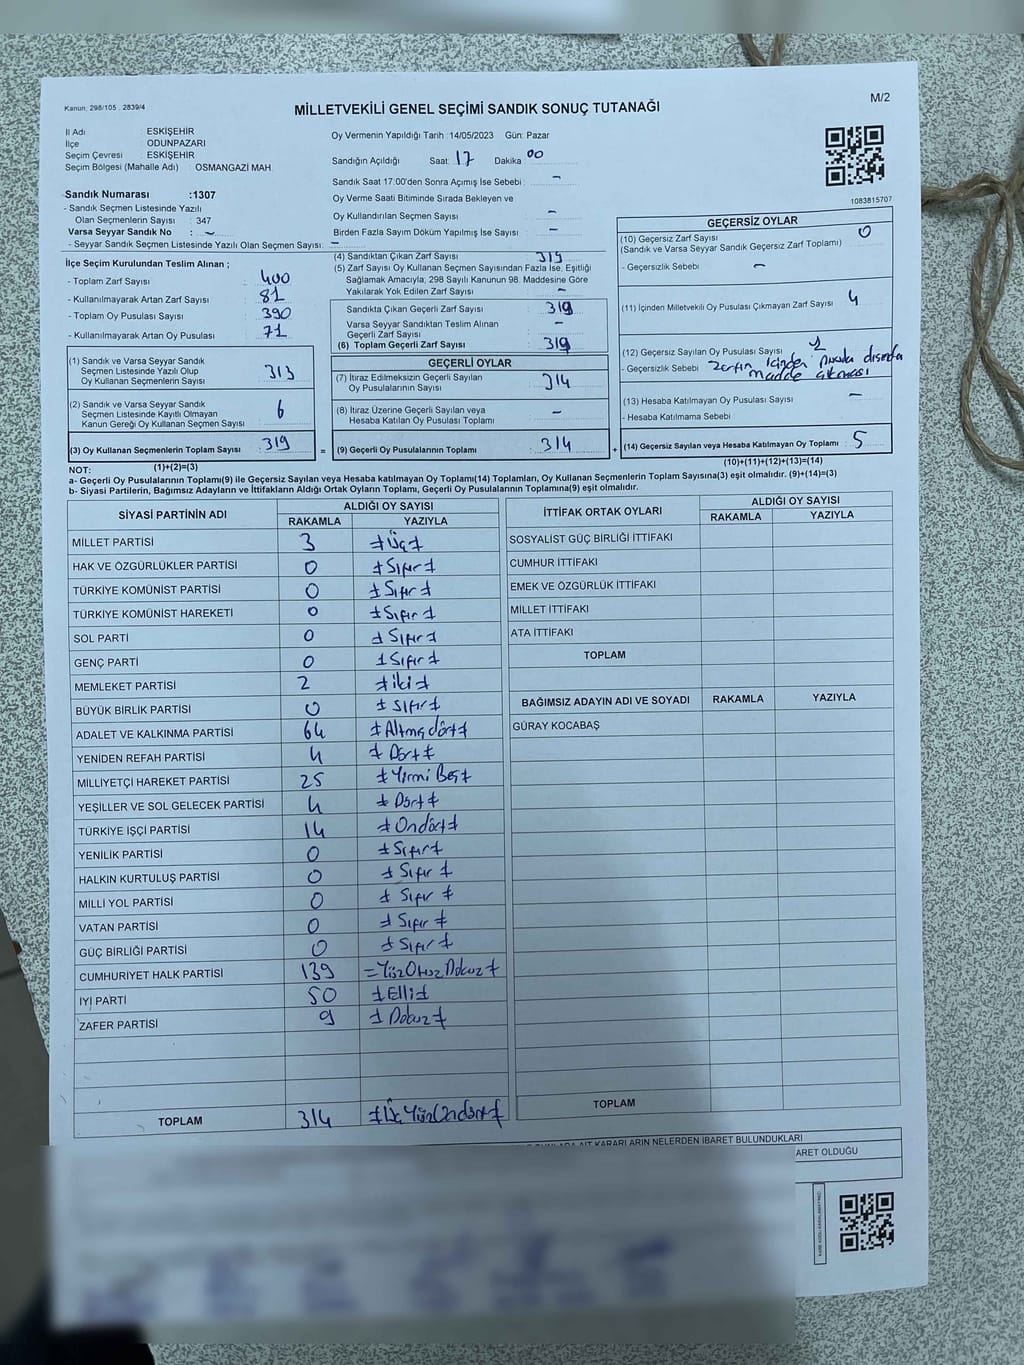 Kanun: 298/105 , 2839/4
MİLLETVEKİLİ GENEL SEÇİMİ SANDIK SONUÇ TUTANAĞI
M/2
İl Adı : ESKİŞEHİR
İlçe : ODUNPAZARI
Seçim Çevresi : ESKİŞEHİR
Seçim Bölgesi (Mahalle Adı) : OSMANGAZİ MAH.
Oy Vermenin Yapıldığı Tarih : 14/05/2023 Gün: Pazar
Sandığın Açıldığı Saat: 17 Dakika 00
Sandık Saat 17:00'den Sonra Açımış İse Sebebi : -
Oy Verme Saati Bitiminde Sırada Bekleyen ve
Oy Kullandırılan Seçmen Sayısı -
Birden Fazla Sayım Döküm Yapılmış İse Sayısı -
1083815707
Sandık Numarası :1307
- Sandık Seçmen Listesinde Yazılı
Olan Seçmenlerin Sayısı : 347
Varsa Seyyar Sandık No : -
- Seyyar Sandık Seçmen Listesinde Yazılı Olan Seçmen Sayısı: -
İlçe Seçim Kurulundan Teslim Alınan ;
- Toplam Zarf Sayısı : 400
- Kullanılmayarak Artan Zarf Sayısı : 81
- Toplam Oy Pusulası Sayısı : 390
- Kullanılmayarak Artan Oy Pusulası : 71
(1) Sandık ve Varsa Seyyar Sandık
Seçmen Listesinde Yazılı Olup
Oy Kullanan Seçmenlerin Sayısı 313
(2) Sandık ve Varsa Seyyar Sandık
Seçmen Listesinde Kayıtlı Olmayan
Kanun Gereği Oy Kullanan Seçmen Sayısı 6
(3) Oy Kullanan Seçmenlerin Toplam Sayısı 319
(1)+(2)=(3)
(4) Sandıktan Çıkan Zarf Sayısı 319
(5) Zarf Sayısı Oy Kullanan Seçmen Sayısından Fazla İse, Eşitliği
Sağlamak Amacıyla, 298 Sayılı Kanunun 98. Maddesine Göre
Yakılarak Yok Edilen Zarf Sayısı -
Sandıkta Çıkan Geçerli Zarf Sayısı 319
Varsa Seyyar Sandıktan Teslim Alınan
Geçerli Zarf Sayısı -
(6) Toplam Geçerli Zarf Sayısı 319
GEÇERLİ OYLAR
(7) İtiraz Edilmeksizin Geçerli Sayılan
Oy Pusulalarının Sayısı 314
(8) İtiraz Üzerine Geçerli Sayılan veya
Hesaba Katılan Oy Pusulası Toplamı -
= (9) Geçerli Oy Pusulalarının Toplamı 314 +
GEÇERSİZ OYLAR
(10) Geçersiz Zarf Sayısı 0
(Sandık ve Varsa Seyyar Sandık Geçersiz Zarf Toplamı)
- Geçersizlik Sebebi -
(11) İçinden Milletvekili Oy Pusulası Çıkmayan Zarf Sayısı 4
(12) Geçersiz Sayılan Oy Pusulası Sayısı 1
- Geçersizlik Sebebi zarfın içinden pusula dışında
madde çıkması
(13) Hesaba Katılmayan Oy Pusulası Sayısı -
- Hesaba Katılmama Sebebi
(14) Geçersiz Sayılan veya Hesaba Katılmayan Oy Toplamı 5
(10)+(11)+(12)+(13)=(14)
NOT:
a- Geçerli Oy Pusulalarının Toplamı(9) ile Geçersiz Sayılan veya Hesaba katılmayan Oy Toplamı(14) Toplamları, Oy Kullanan Seçmenlerin Toplam Sayısına(3) eşit olmalıdır. (9)+(14)=(3)
b- Siyasi Partilerin, Bağımsız Adayların ve İttifakların Aldığı Ortak Oyların Toplamı, Geçerli Oy Pusulalarının Toplamına(9) eşit olmalıdır.
SİYASİ PARTİNİN ADI ALDIĞI OY SAYISI
RAKAMLA YAZIYLA
MİLLET PARTİSİ 3 Üç
HAK VE ÖZGÜRLÜKLER PARTİSİ 0 Sıfır
TÜRKİYE KOMÜNİST PARTİSİ 0 Sıfır
TÜRKİYE KOMÜNİST HAREKETİ 0 Sıfır
SOL PARTİ 0 Sıfır
GENÇ PARTİ 0 Sıfır
MEMLEKET PARTİSİ 2 iki
BÜYÜK BİRLİK PARTİSİ 0 Sıfır
ADALET VE KALKINMA PARTİSİ 64 Altmışdört
YENİDEN REFAH PARTİSİ 4 Dört
MİLLİYETÇİ HAREKET PARTİSİ 25 Yirmi Beş
YEŞİLLER VE SOL GELECEK PARTİSİ 4 Dört
TÜRKİYE İŞÇİ PARTİSİ 14 Ondört
YENİLİK PARTİSİ 0 Sıfır
HALKIN KURTULUŞ PARTİSİ 0 Sıfır
MİLLİ YOL PARTİSİ 0 Sıfır
VATAN PARTİSİ 0 Sıfır
GÜÇ BİRLİĞİ PARTİSİ 0 Sıfır
CUMHURİYET HALK PARTİSİ 139 YüzOtuzDokuz
İYİ PARTİ 50 Elli
ZAFER PARTİSİ 9 Dokuz
TOPLAM 314 ÜçYüzOndört
İTTİFAK ORTAK OYLARI ALDIĞI OY SAYISI
RAKAMLA YAZIYLA
SOSYALİST GÜÇ BİRLİĞİ İTTİFAKI
CUMHUR İTTİFAKI
EMEK VE ÖZGÜRLÜK İTTİFAKI
MİLLET İTTİFAKI
ATA İTTİFAKI
TOPLAM
BAĞIMSIZ ADAYIN ADI VE SOYADI RAKAMLA YAZIYLA
GÜRAY KOCABAŞ
TOPLAM
AİT KARARLARIN NELERDEN İBARET BULUNDUKLARI
OLDUĞU